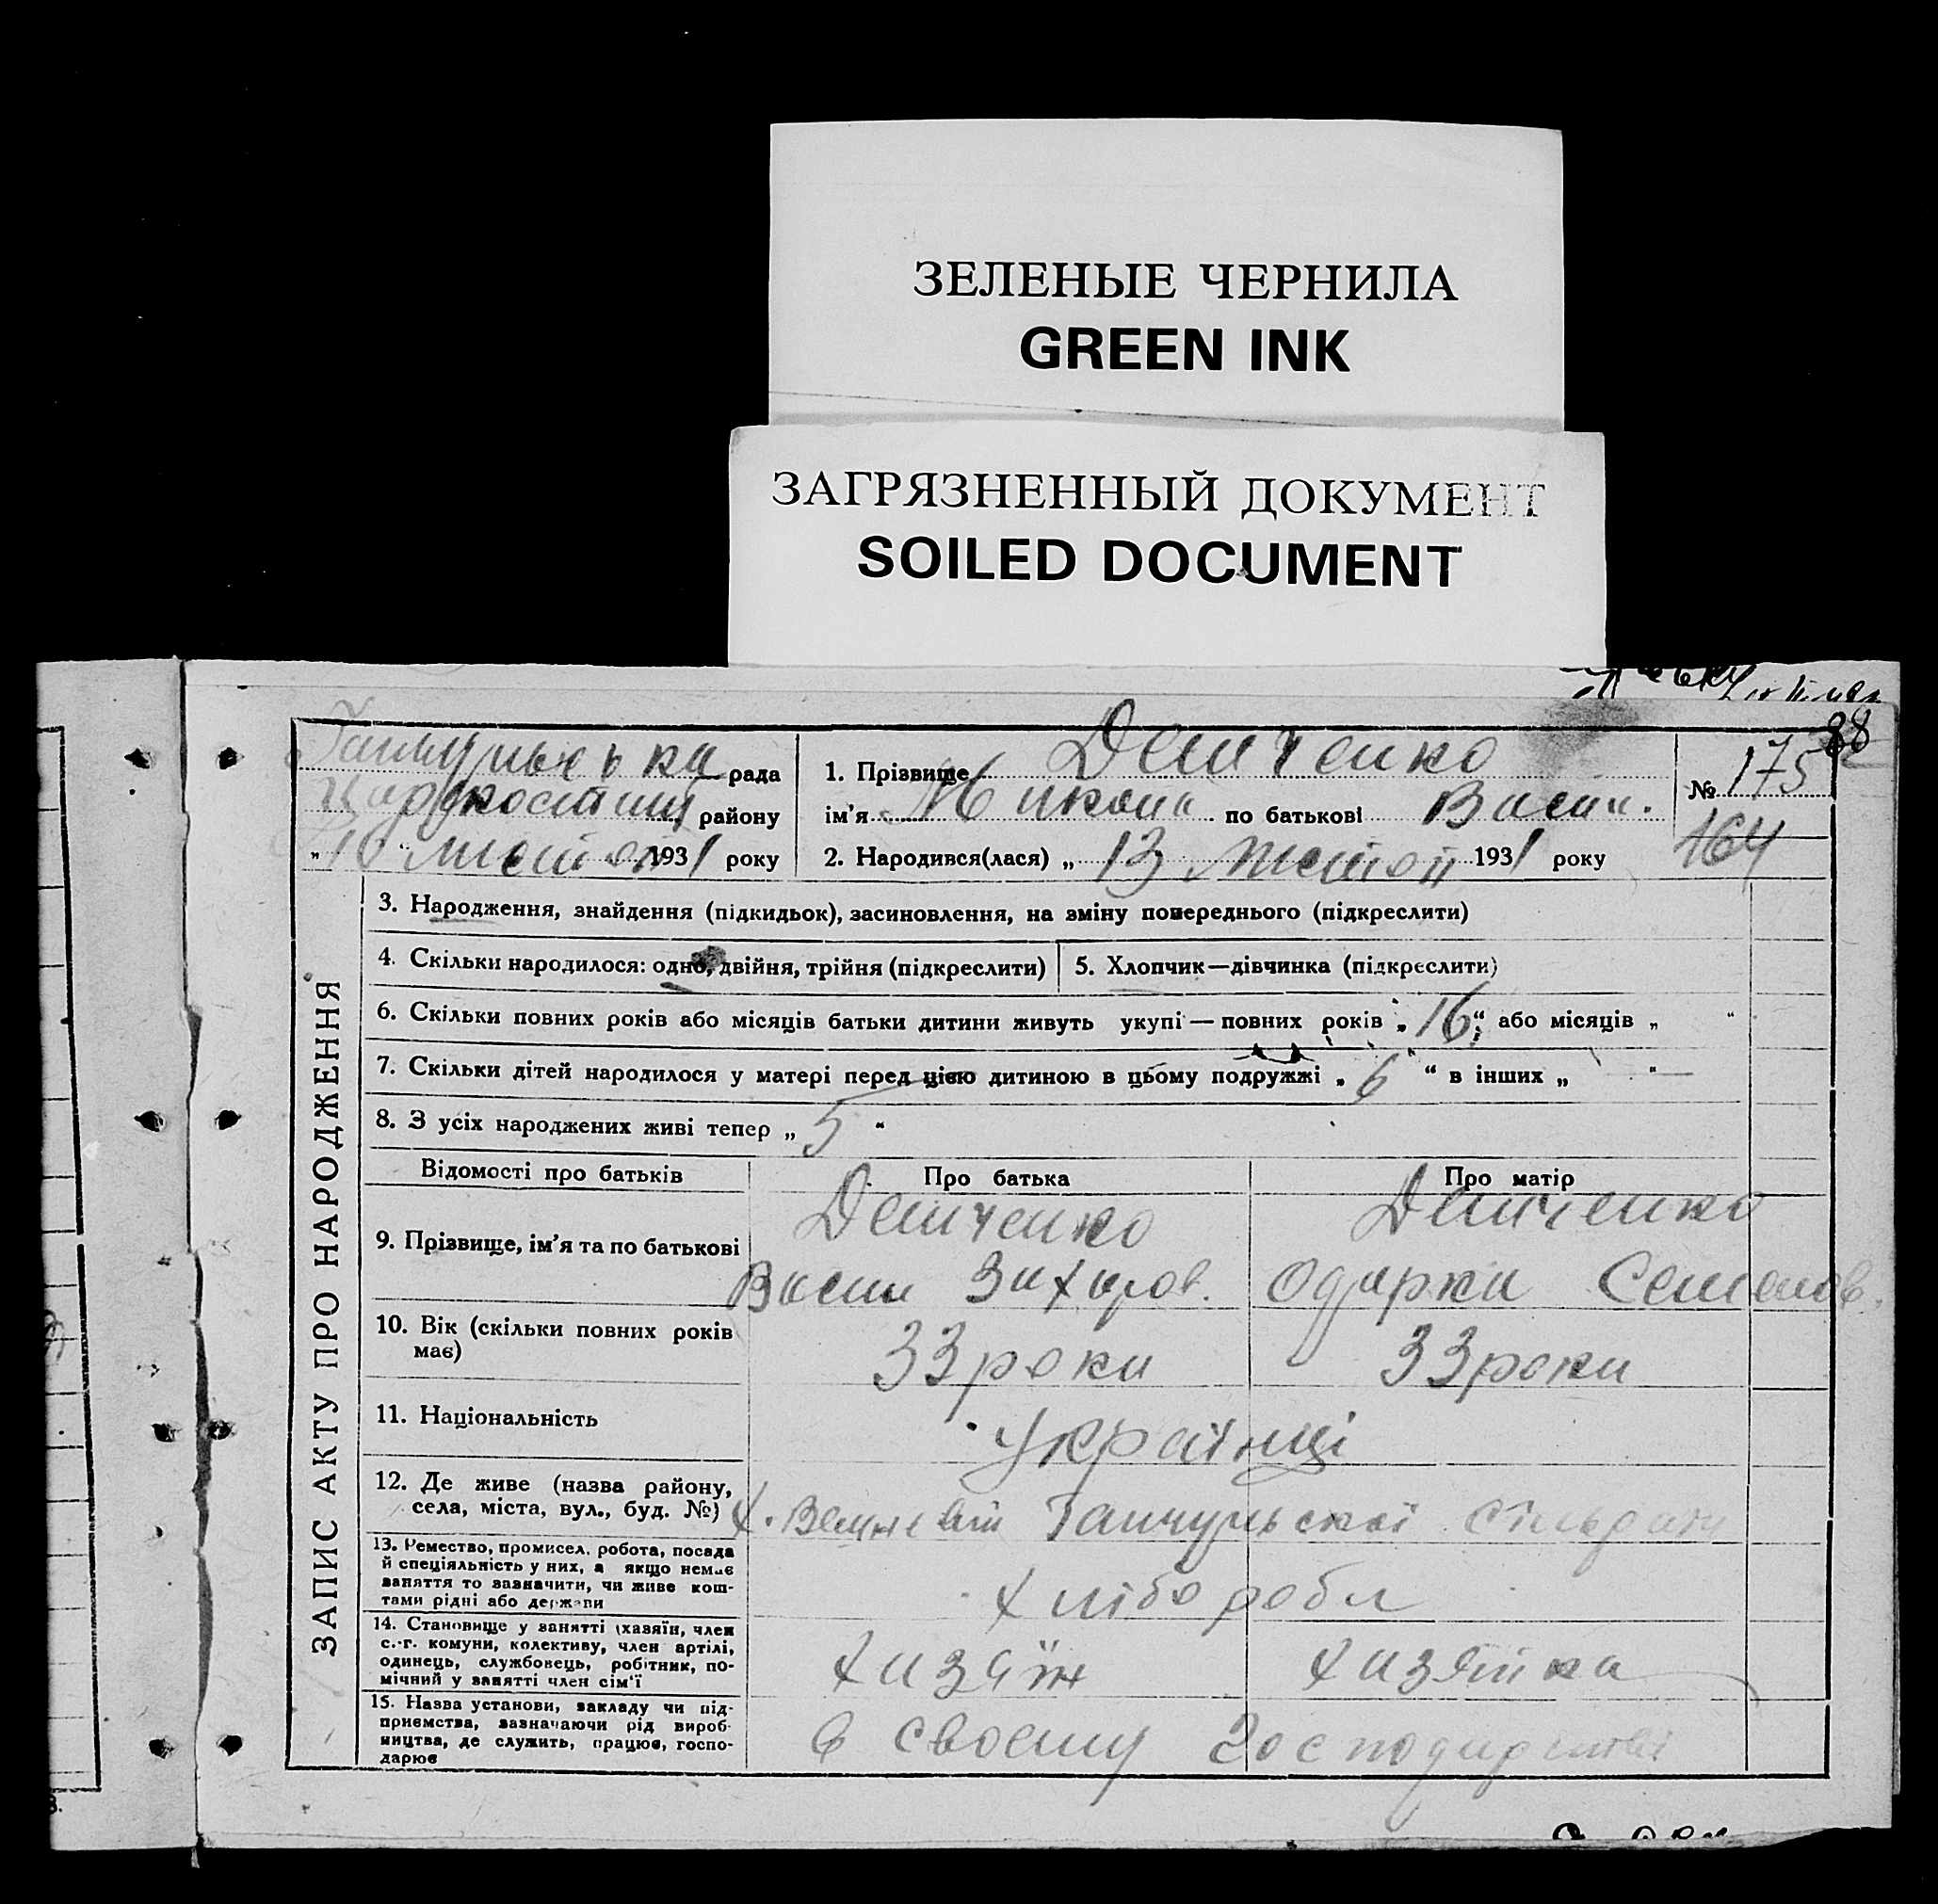 ЗЕЛЕНЫЕ ЧЕРНИЛА
GREEN INK
ЗАГРЯЗНЕННЫЙ ДОКУМЕНТ
SOILED DOCUMENT
88
рада
району
1931 року
1. Прізвище Демченко
ім’я Микола по батькові Васил.
2. Народився(лася) „ 13 листоп 1931 року
№ 175
164
ЗАПИС АКТУ ПРО НАРОДЖЕННЯ
3. Народження, знайдення (підкидьок), засиновлення, на зміну попереднього (підкреслити)
4. Скільки народилося: одно, двійня, трійня (підкреслити)
5. Хлопчик—дівчинка (підкреслити)
6. Скільки повних років або місяців батьки дитини живуть укупі — повних років „ 16 “ або місяців „ “
7. Скільки дітей народилося у матері перед цією дитиною в цьому подружжі „ 6 “ в інших „ — “
8. З усіх народжених живі тепер „ 5 “
Відомості про батьків
Про батька
Про матір
9. Прізвище, ім’я та по батькові
Демченко
Васил Захаров.
Демченко
Одарка Семенов.
10. Вік (скільки повних років
має)
33 роки
33 роки
11. Національність
Українці
12. Де живе (назва району,
села, міста, вул., буд. №)
х. Гайчульської сільради
13. Ремество, промисел, робота, посада
й спеціяльність у них, а якщо немає
заняття то зазначити, чи живе кош-
тами рідні або держави
хлібороби
14. Становище у занятті (хазяїн, член
с.-г. комуни, колективу, член артілі,
одинець, службовець, робітник, по-
мічний у занятті член сім’ї
хазяїн
хазяйка
15. Назва установи, закладу чи під-
приємства, зазначаючи рід вироб-
ництва, де служить, працює, госпо-
дарює
в своему господарстві